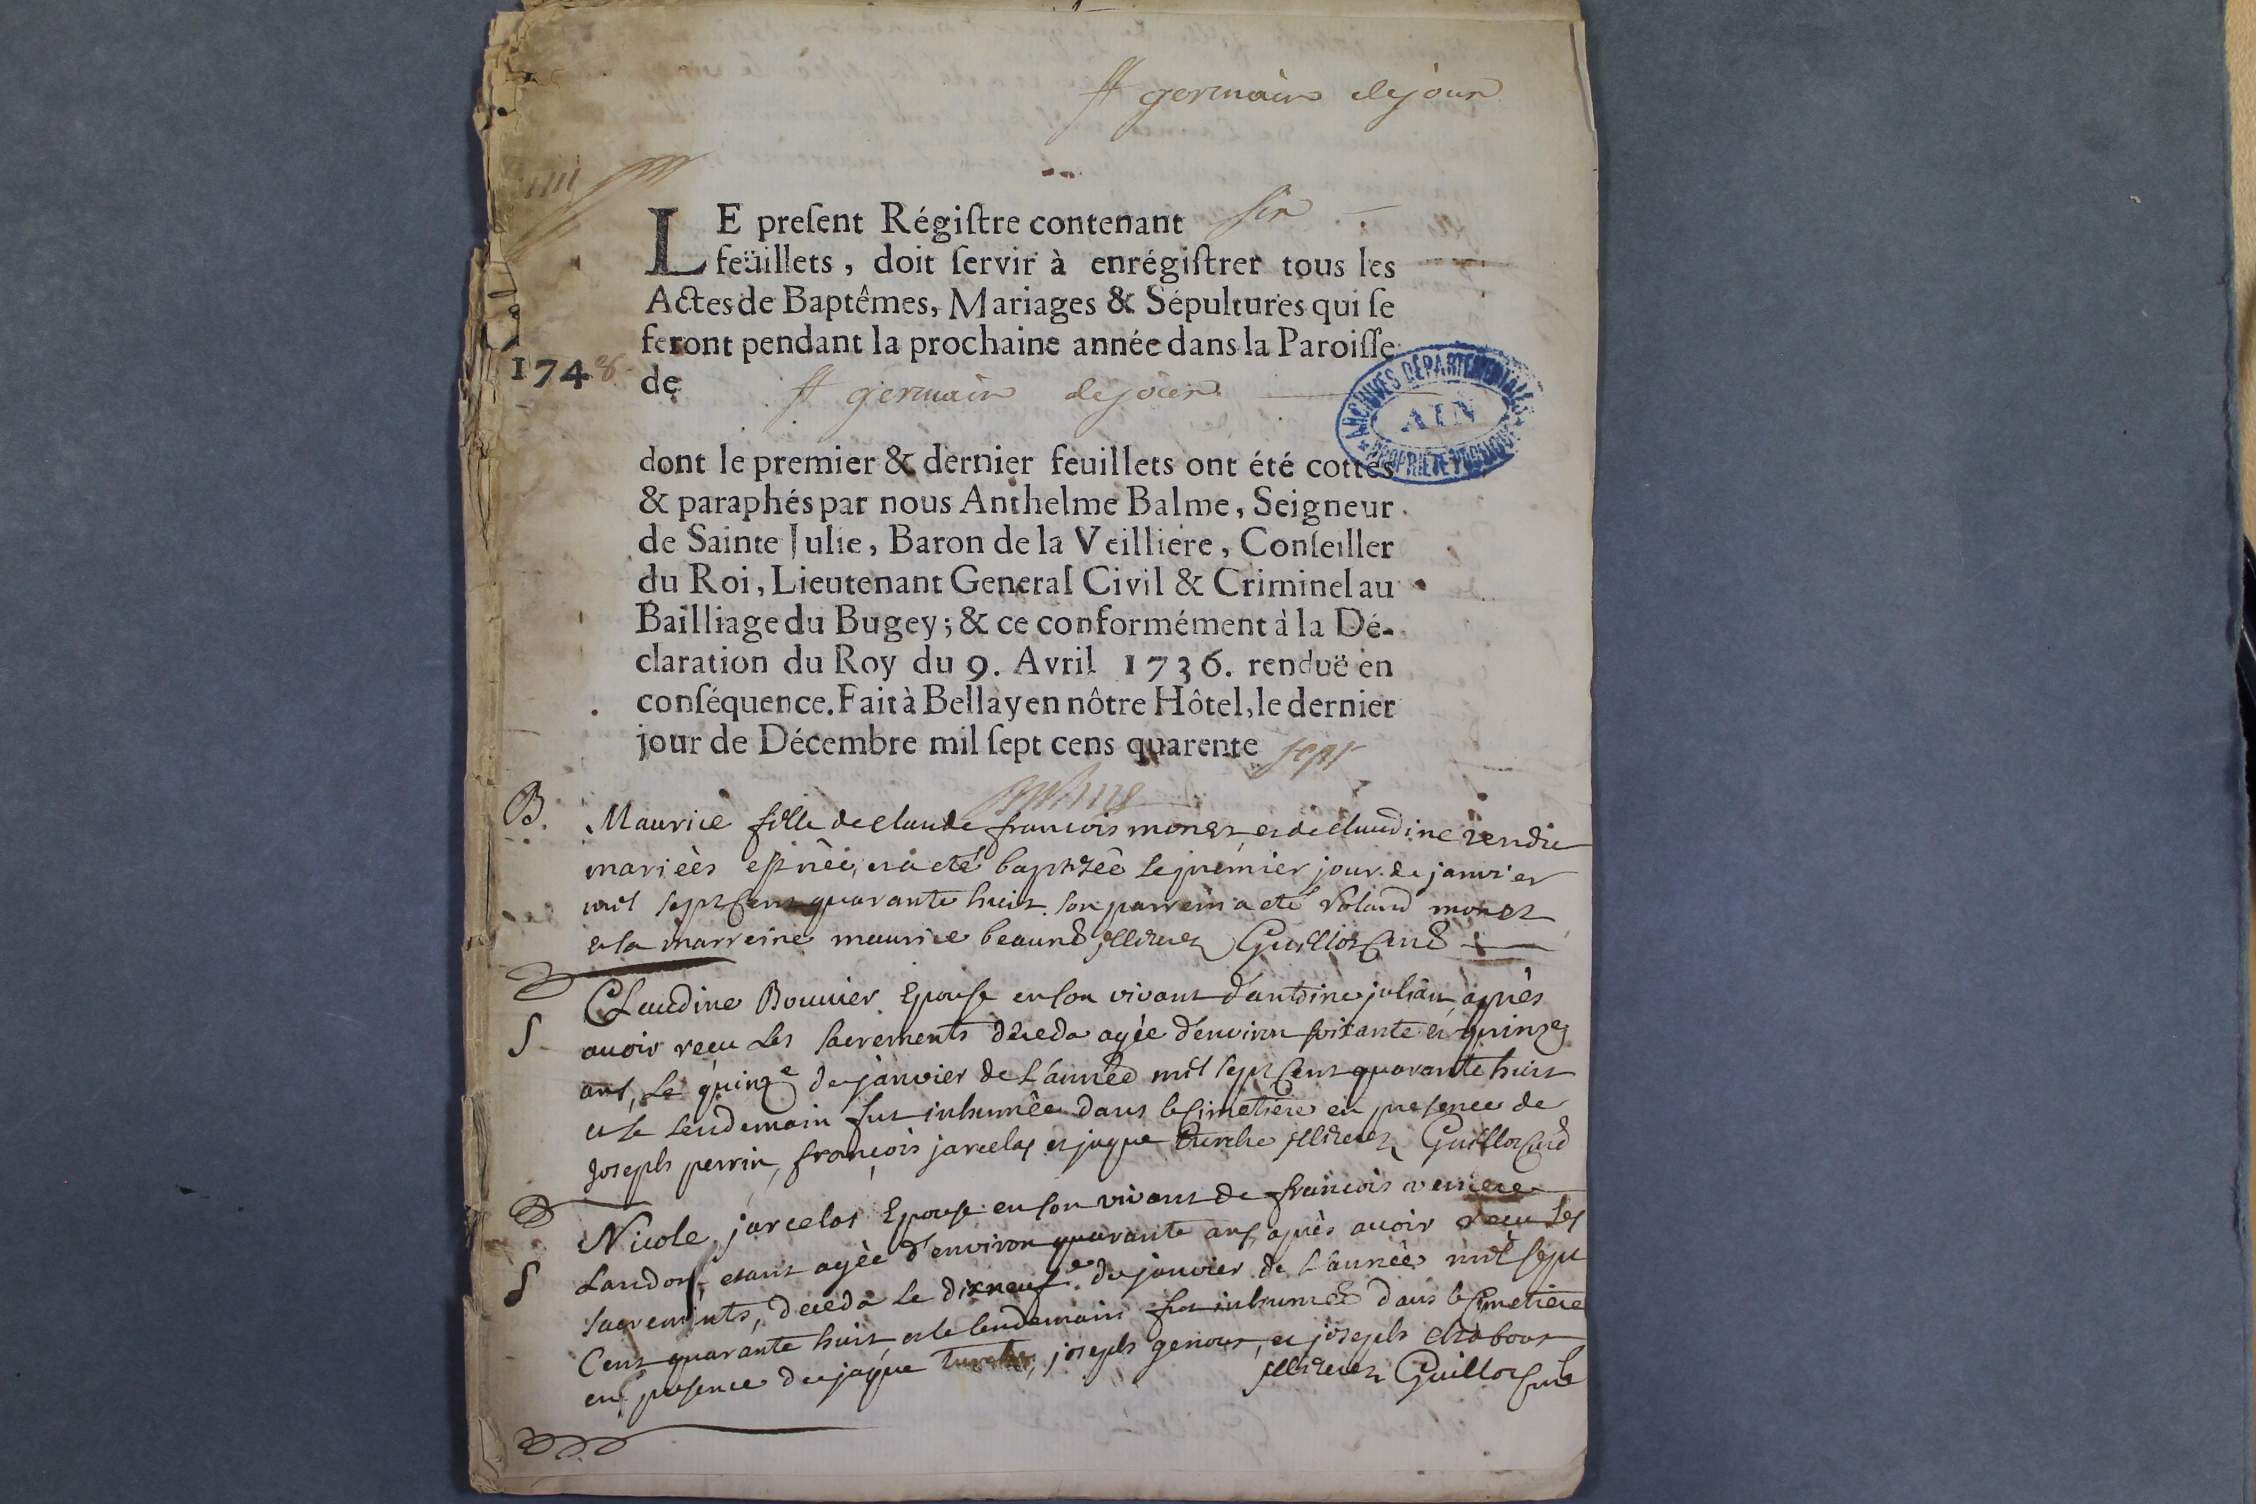 St germain de joux
LE present Régistre contenant six
feüillets, doit servir à enrégistrer tous les
Actes de Baptêmes, Mariages & Sépultures qui se
feront pendant la prochaine année dans la Paroisse
1748 de St germain de joux
ARCHIVES DÉPARTEMENTALES
AIN
PROPRIÉTÉ PUBLIQUE
dont le premier & dernier feuillets ont été cottés
& paraphés par nous Anthelme Balme, Seigneur
de Sainte Julie, Baron de la Veilliere, Conseiller
du Roi, Lieutenant General Civil & Criminel au
Bailliage du Bugey; & ce conformément à la Dé-
claration du Roy du 9. Avril 1736. renduë en
conséquence. Fait à Bellay en nôtre Hôtel, le dernier
jour de Décembre mil sept cens quarente sept
B. Maurice fille de claude francois monet et de claudine
mariéès est néè, et a eté baptizéè le premier jour de janvier
mil sept cent quarante huit son parrein a eté roland monet
et la marreine maurice Guillot Curé
Claudine Bouvier Epouse en son vivant d'antoine julian après
S avoir reçu les sacrements déceda agéè d'environ soixante et quinze
ans, le quinze de janvier de L'année mil sept cent quarante huit
et le lendemain fut inhuméè dans le cimetiere en presence de
joseph perrin, françois jarcelat et jaque Guillot Curé
Nicole jarcelat Epouse en son vivant de francois
S etant agéè d'environ quarante ans, après avoir reçu les
sacrements, déceda le dixneuf e de janvier de L'année mil sept
Cent quarante huit et le lendemain fut inhuméè dans le cimetiere
en presence de jaque joseph genout, et joseph
Guillot Curé